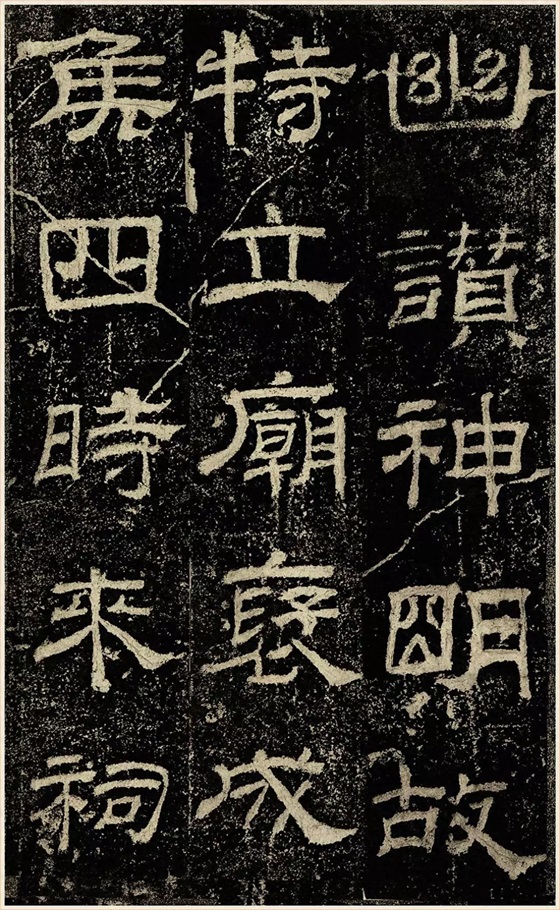 幽讚神明故
特立廟褒成
侯四時來祠